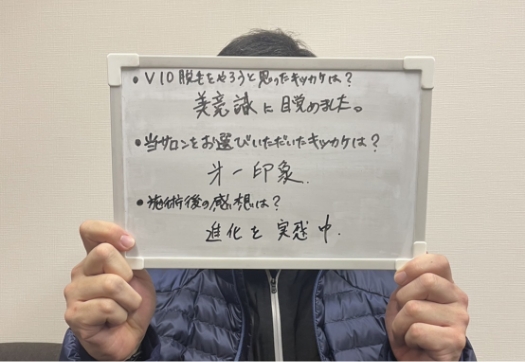 • VIO脱毛をやろうと思ったキッカケは？
美意識に目覚めました。
• 当サロンをお選びいただいたキッカケは？
㐧一印象.
• 施術後の感想は？
進化を実感中.